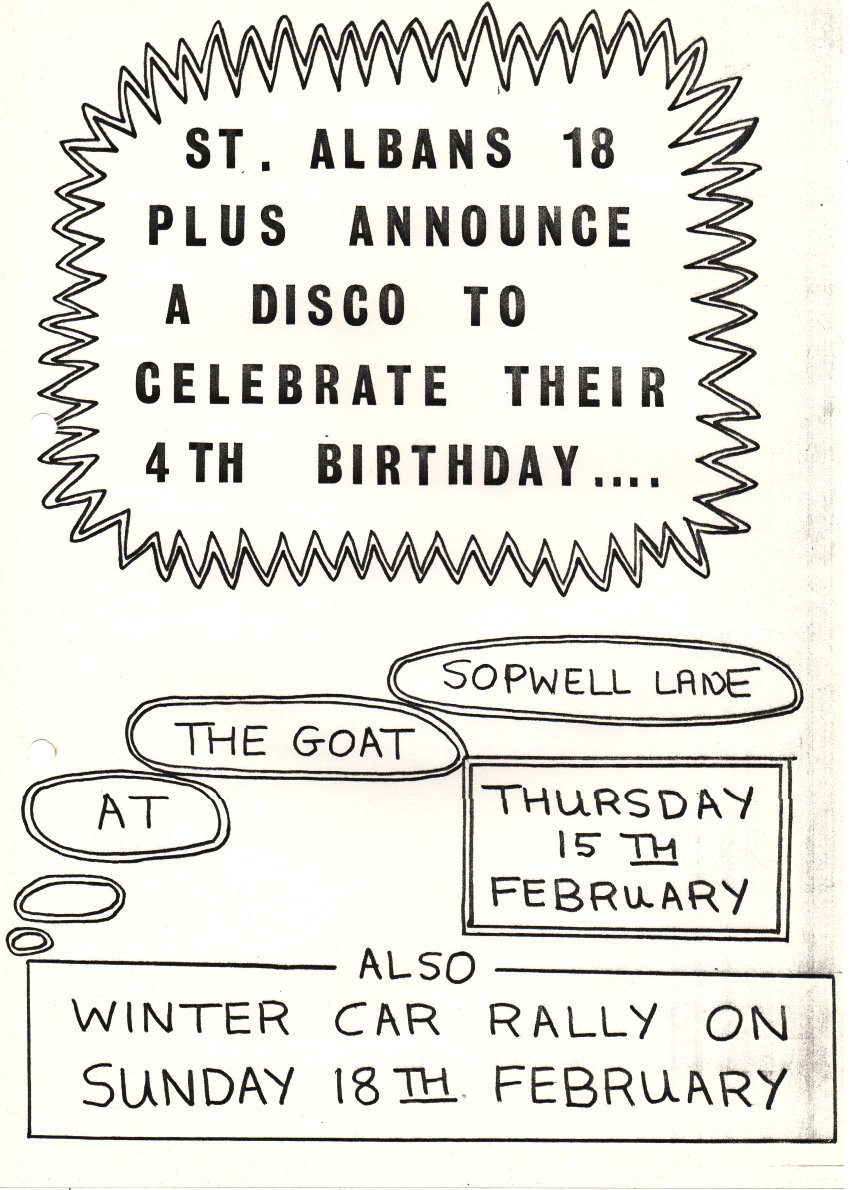 ST. ALBANS 18
PLUS ANNOUNCE
A DISCO TO
CELEBRATE THEIR
4TH BIRTHDAY....
AT
THE GOAT
SOPWELL LANE
THURSDAY
15TH
FEBRUARY
ALSO
WINTER CAR RALLY ON
SUNDAY 18TH FEBRUARY